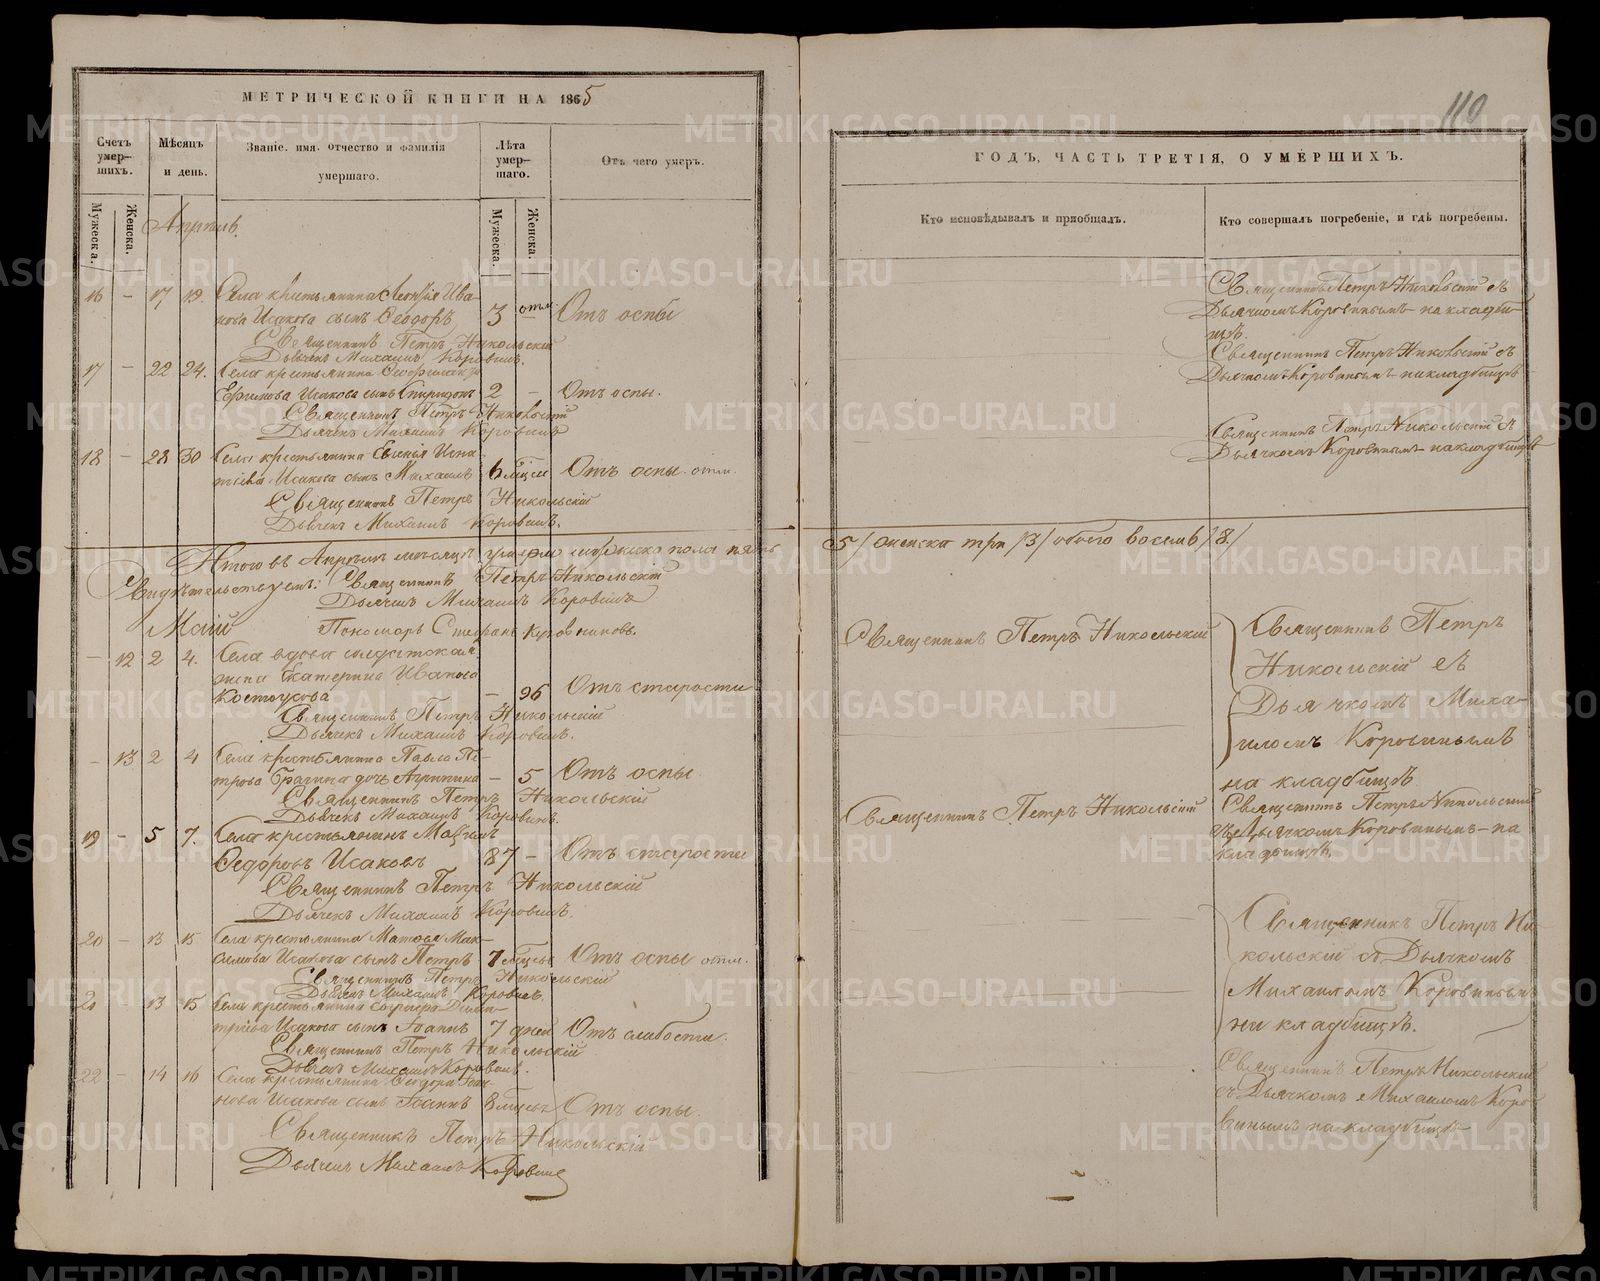 МЕТРИЧЕСКОЙ КНИГИ НА 1865
Счетъ умер-шихъ.
Мѣсяцъ и день.
Званіе, имя, отчество и фамилія умершаго.
Лѣта умер-шаго.
Отъ чего умеръ.
Мужеска.
Женска.
Мужеска.
Женска.
Апрѣль.
16 – 17 19. Села крестьянина Леонтія Ива-
нова Исакова сынъ Ѳеодоръ 3 – Отъ оспы
Священникъ Петръ Никольскій
Дьячекъ Михаилъ Коровинъ.
17 – 22 24. Села крестьянина
Ефимова Исакова сынъ Спиридонъ 2 – Отъ оспы.
Священникъ Петръ Никольскій
Дьячекъ Михаилъ Коровинъ
18 – 28 30 Села крестьянина Евгенія Игна-
тіева Исакова сынъ Михаилъ 6 мѣсяц Отъ оспы
Священникъ Петръ Никольскій
Дьячекъ Михаилъ Коровинъ.
Итого въ Апрѣлѣ мѣсяцѣ умерло мужеска пола пять
Свидѣтельствуемъ: Священникъ Петръ Никольскій
Дьячекъ Михаилъ Коровинъ
Май Пономарь Стефанъ
– 12 2 4. Села вдова солдатская
жена Екатерина Иванова
Костоусова – 96 Отъ старости
Священникъ Петръ Никольскій
Дьячекъ Михаилъ Коровинъ.
– 13 2 4 Села крестьянина Павла Пе-
трова Брагина дочь Агрипина – 5 Отъ оспы
Священникъ Петръ Никольскій
Дьячекъ Михаилъ Коровинъ.
19 – 5 7. Села крестьянинъ Максимъ
Ѳедоровъ Исаковъ 87 – Отъ старости
Священникъ Петръ Никольскій
Дьячекъ Михаилъ Коровинъ.
20 – 13 15 Села крестьянина Матвея Мак-
симова Исакова сынъ Петръ 7 мѣсяц Отъ оспы
Священникъ Петръ Никольскій
Дьячекъ Михаилъ Коровинъ.
21 13 15 Села крестьянина Дими-
тріева Исакова сынъ Іоаннъ 7 дней Отъ слабости
Священникъ Петръ Никольскій
Дьячекъ Михаилъ Коровинъ.
22 – 14 16 Села крестьянина Ѳеодора Іоан-
нова Исакова сынъ Іоаннъ 8 мѣсяц Отъ оспы.
Священникъ Петръ Никольскій
Дьячекъ Михаилъ Коровинъ
110
ГОДЪ, ЧАСТЬ ТРЕТІЯ, О УМЕРШИХЪ.
Кто исповѣдывалъ и пріобщалъ.
Кто совершалъ погребеніе, и гдѣ погребены.
Священникъ Петръ Никольскій съ
Дьячкомъ Коровинымъ на кладби-
щѣ
Священникъ Петръ Никольскій съ
Дьячкомъ Коровинымъ на кладбищѣ
Священникъ Петръ Никольскій съ
Дьячкомъ Коровинымъ на кладбищѣ
5/ женска три /3/ обоего восемь /8/
Священникъ Петръ Никольскій
Священникъ Петръ
Никольскій съ
Дьячкомъ Миха-
иломъ Коровинымъ
на кладбищѣ
Священникъ Петръ Никольскій
Священникъ Петръ Никольскій
съ Дьячкомъ Коровинымъ на
кладбищѣ.
Священникъ Петръ Ни-
кольскій съ Дьячкомъ
Михаиломъ Коровинымъ
на кладбищѣ.
Священникъ Петръ Никольскій
съ Дьячкомъ Михаиломъ Коро-
винымъ на кладбищѣ
METRIKI.GASO-URAL.RU